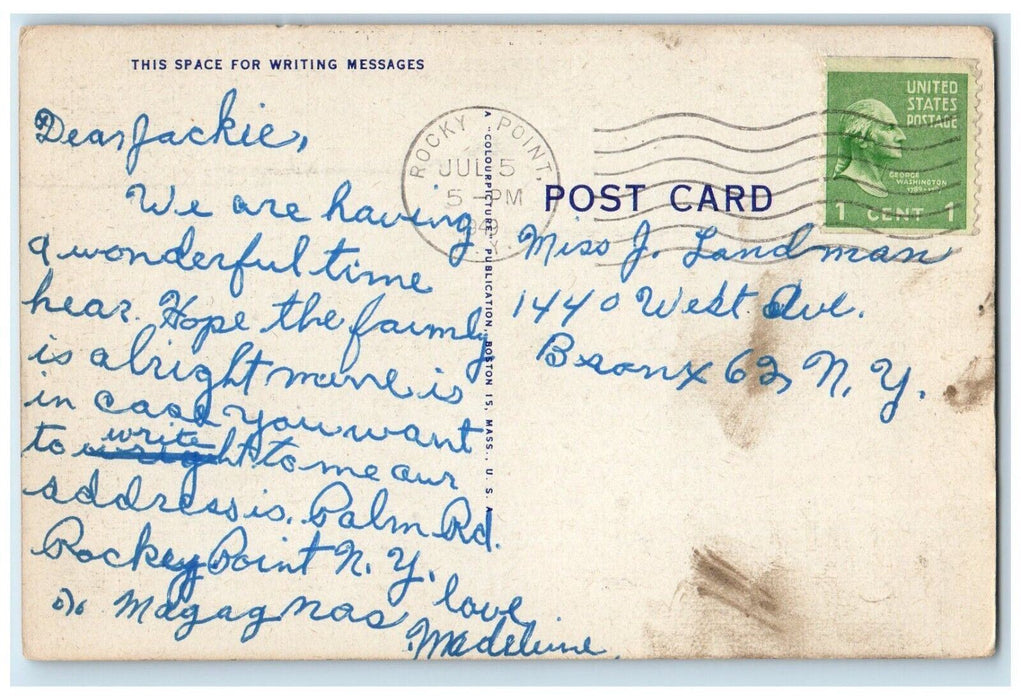 THIS SPACE FOR WRITING MESSAGES
Dear Jackie,
We are having
a wonderful time
hear. Hope the faimly
is alright mine is
in case you want
to write to me our
address is. Palm Rd.
Rockey Point N. Y.
c/o Magagnas love
Madeline
A "COLOURPICTURE" PUBLICATION, BOSTON 15, MASS., U. S. A.
ROCKY POINT,
JUL 5
5 - PM
N.Y.
UNITED
STATES
POSTAGE
GEORGE
WASHINGTON
1 CENT 1
POST CARD
Miss J. Landman
1440 West Ave.
Bronx 62, N. Y.